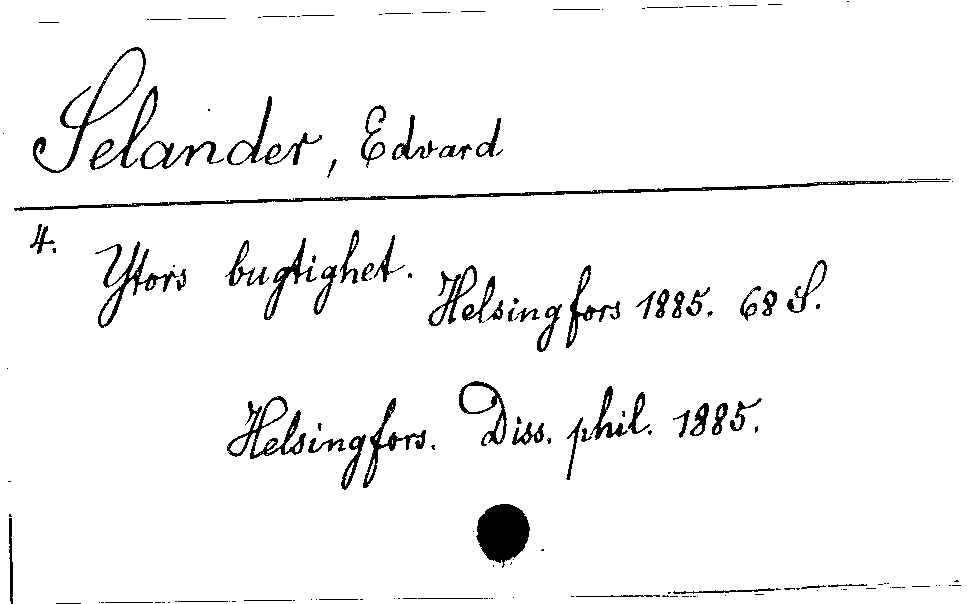 Selander, Edvard
4. Ytors bugtighet.
Helsingfors 1885. 68 S.
Helsingfors. Diss. phil. 1885.